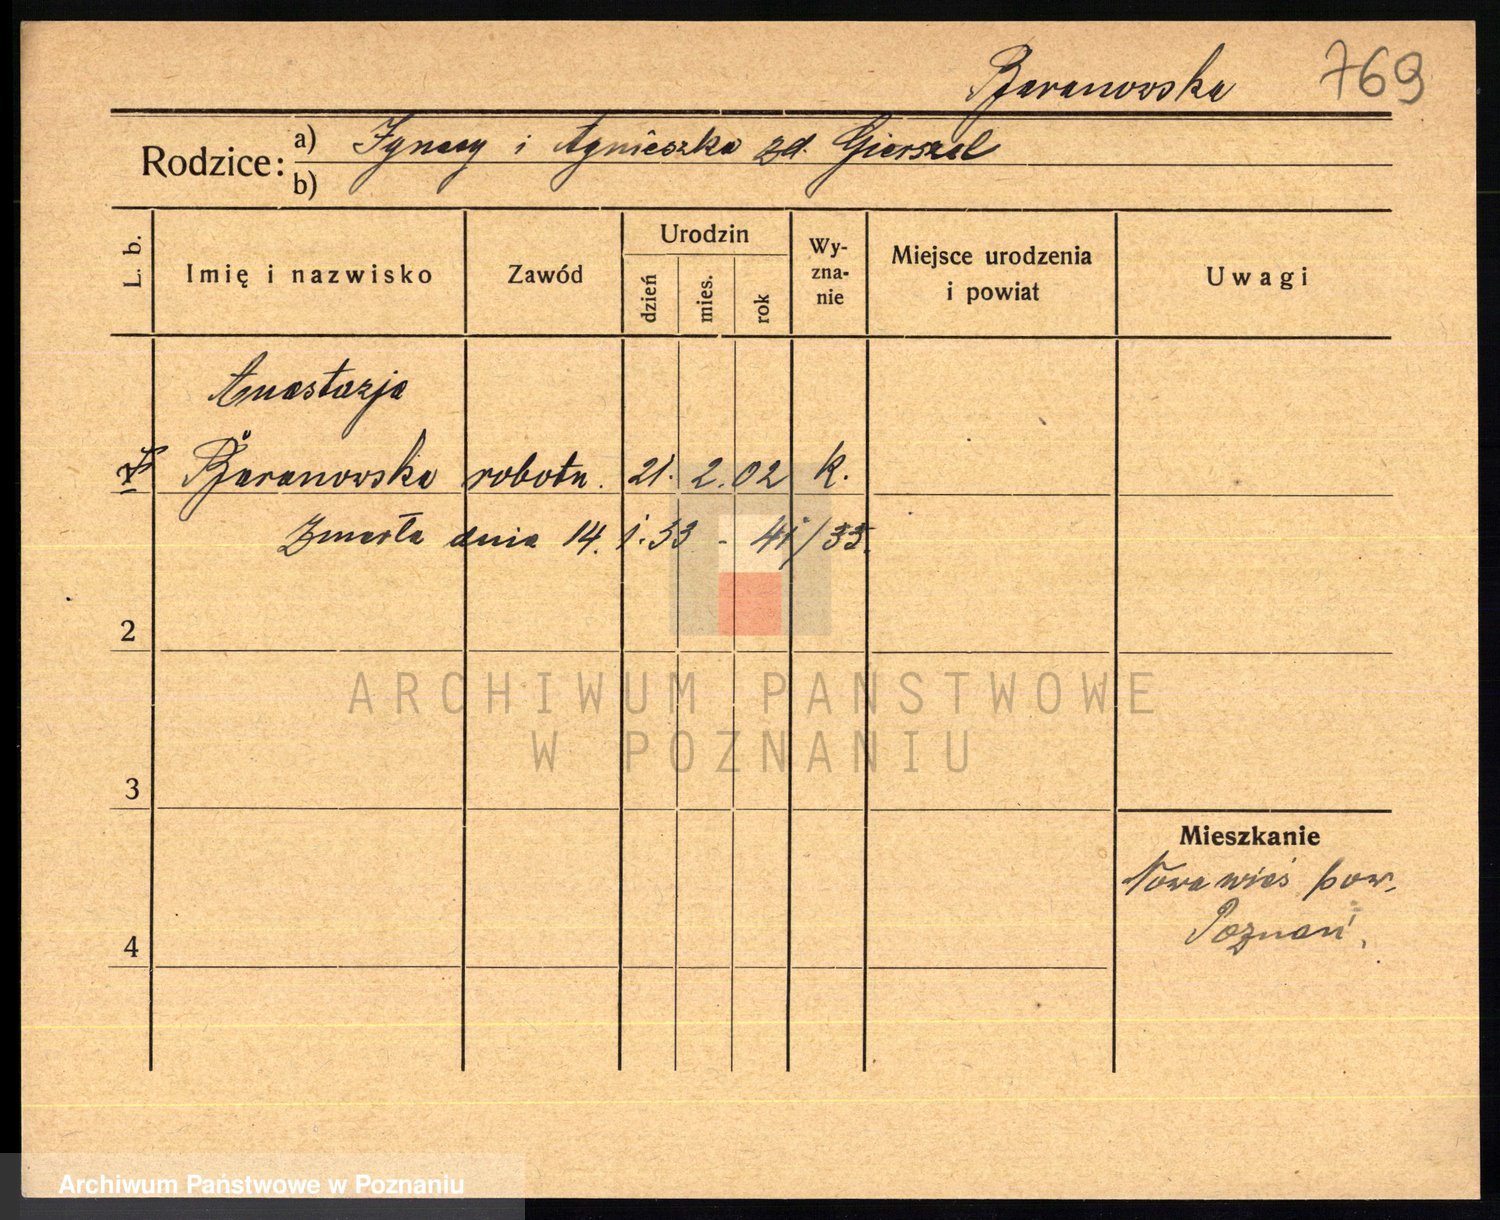 Baranowska 769
Rodzice: a) Ignacy i Agnieszka zd. Gierszal
b)
L. b. Imię i nazwisko Zawód Urodzin dzień mies. rok Wy-zna-nie Miejsce urodzenia i powiat Uwagi
Anastazja
Baranowska robotn. 21. 2. 02 k.
Zmarła dnia 14. 1. 33 - 41/33.
2
ARCHIWUM PAŃSTWOWE
W POZNANIU
3
Mieszkanie
Nowawieś pow.
Poznań.
4
Archiwum Państwowe w Poznaniu